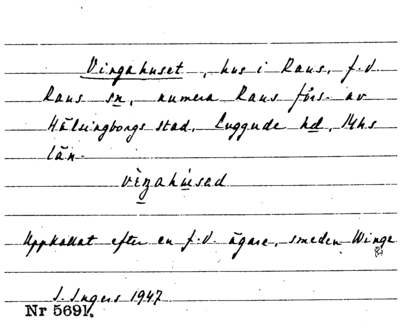 Vingahuset, hus i Raus, f.d.
Raus sn, numera Raus förs. av
Hälsingborgs stad, Luggude hd, Mhs
län.
Uppkallat efter en f.d. ägare, smeden Winge
I. Ingers 1947
Nr 5691.